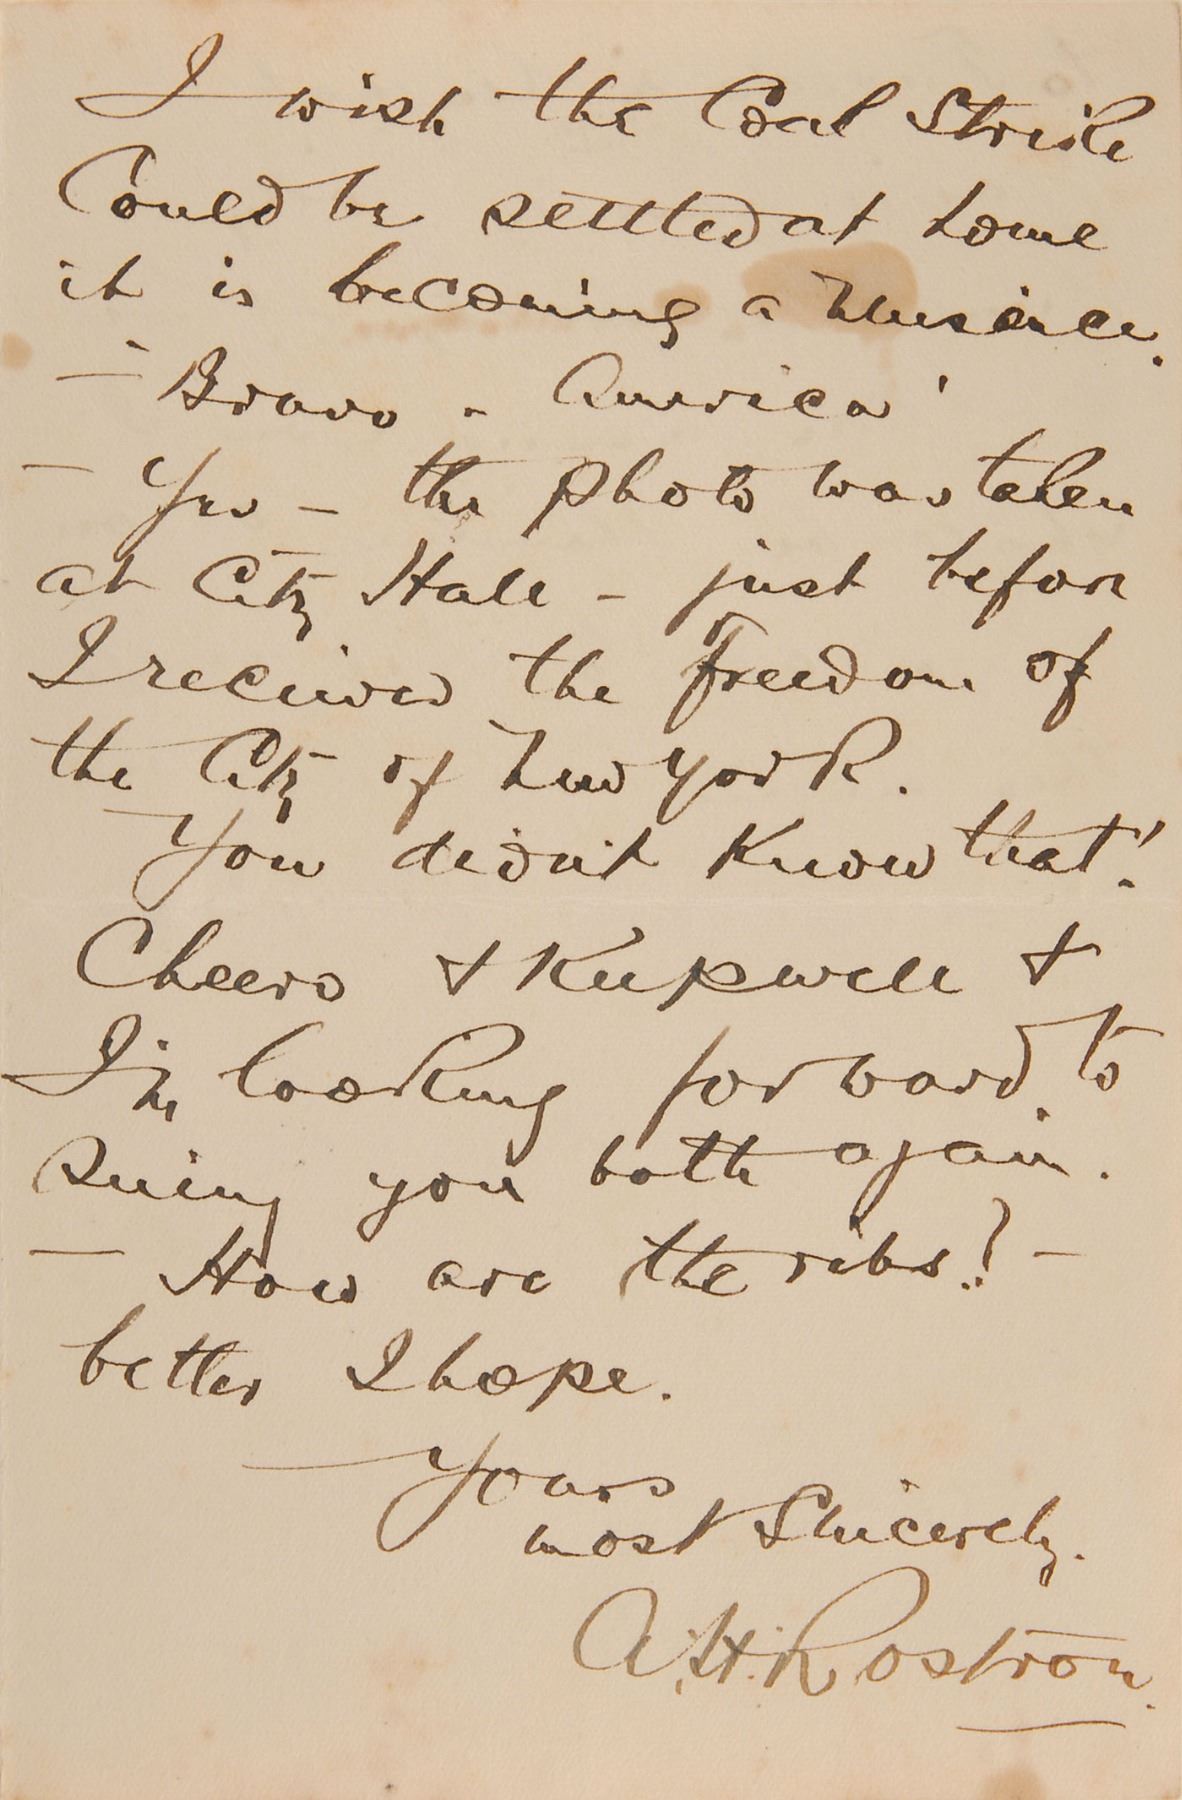 I wish the Coal Strike
Could be settled at home
it is becoming a nuisance.
— Bravo - America!
— Yes — the photo was taken
at City Hall - just before
I received the Freedom of
the City of New York.
You didn't know that!
Cheero & Keepwell &
I'm looking forward to
seeing you both again.
— How are the ribs? —
better I hope.
Yours
most Sincerely.
A.H. Rostron.